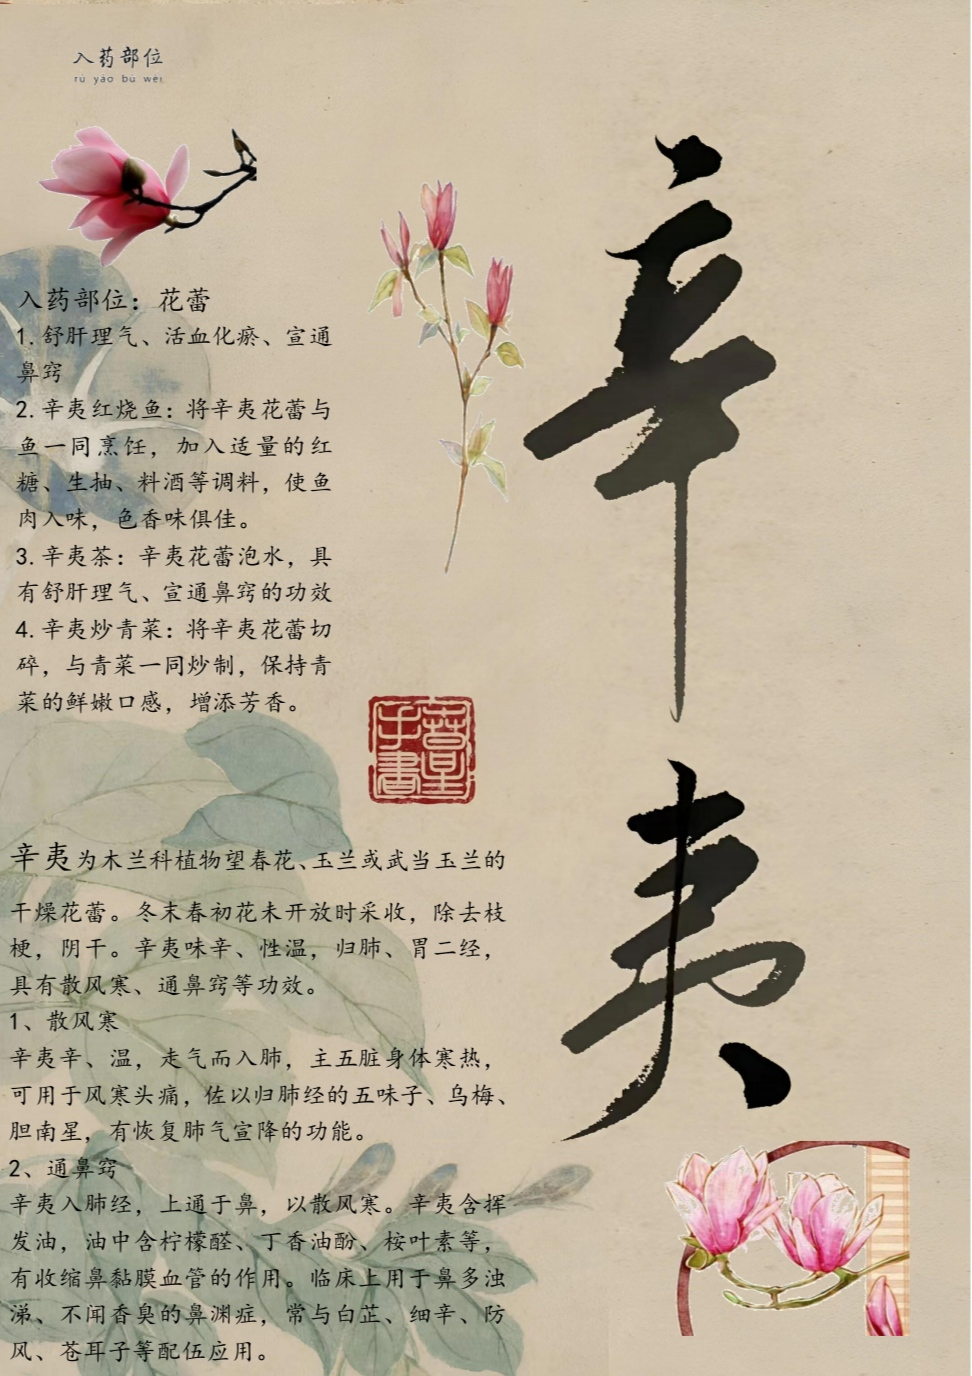 入药部位
rù yào bù wèi
辛夷
入药部位：花蕾
1.舒肝理气、活血化瘀、宣通
鼻窍
2.辛夷红烧鱼：将辛夷花蕾与
鱼一同烹饪，加入适量的红
糖、生抽、料酒等调料，使鱼
肉入味，色香味俱佳。
3.辛夷茶：辛夷花蕾泡水，具
有舒肝理气、宣通鼻窍的功效
4.辛夷炒青菜：将辛夷花蕾切
碎，与青菜一同炒制，保持青
菜的鲜嫩口感，增添芳香。
辛夷为木兰科植物望春花、玉兰或武当玉兰的
干燥花蕾。冬末春初花未开放时采收，除去枝
梗，阴干。辛夷味辛、性温，归肺、胃二经，
具有散风寒、通鼻窍等功效。
1、散风寒
辛夷辛、温，走气而入肺，主五脏身体寒热，
可用于风寒头痛，佐以归肺经的五味子、乌梅、
胆南星，有恢复肺气宣降的功能。
2、通鼻窍
辛夷入肺经，上通于鼻，以散风寒。辛夷含挥
发油，油中含柠檬醛、丁香油酚、桉叶素等，
有收缩鼻黏膜血管的作用。临床上用于鼻多浊
涕、不闻香臭的鼻渊症，常与白芷、细辛、防
风、苍耳子等配伍应用。